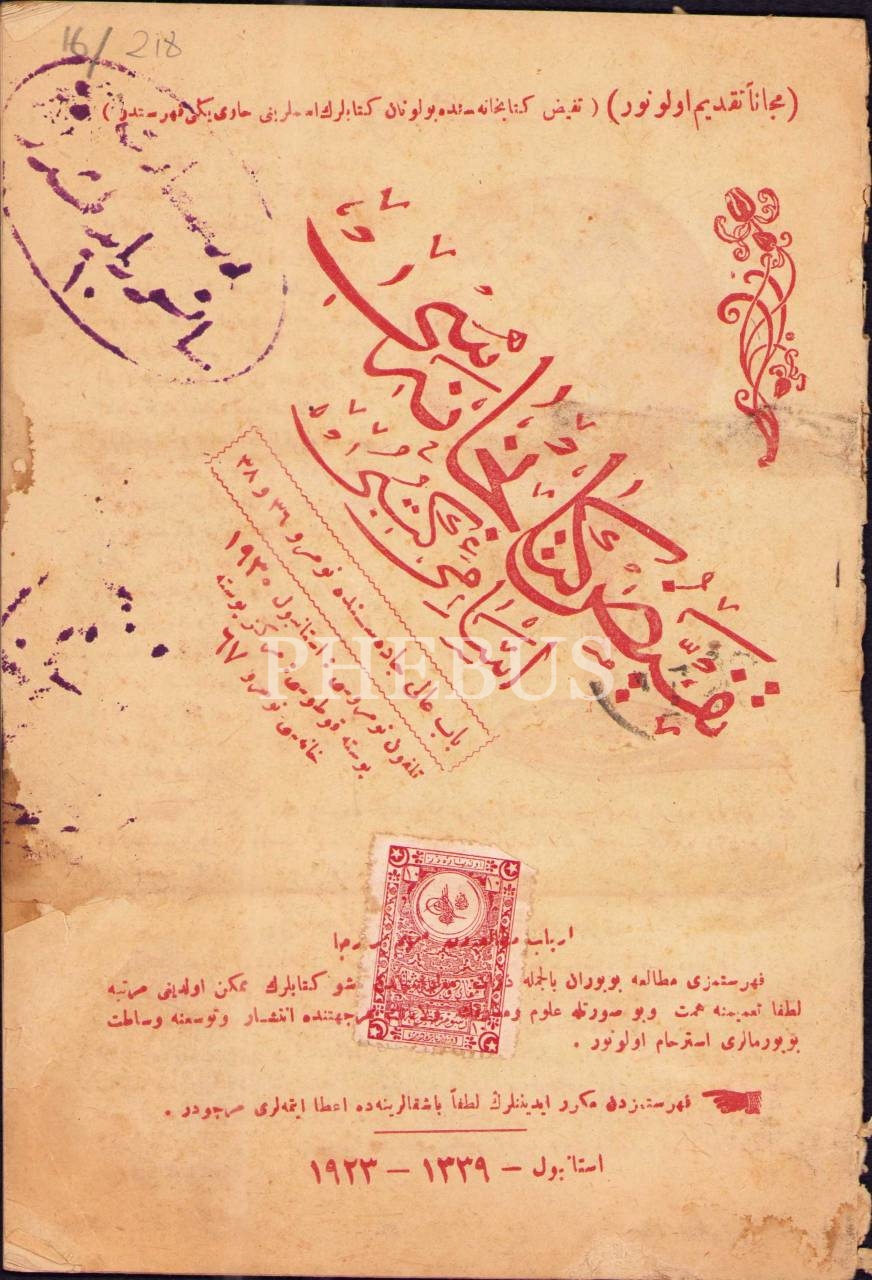 16/ 218
(مجاناً تقدیم اولونور) (تفیض کتابخانه‌سنده بولونان کتابلرك اسملرینی حاوی یکی فهرستدر)
تفیض کتابخانه‌سی
باب عالی جاده‌سنده نومرو ٣٦ و ٣٨
تلفون نومروسی: استانبول ١٩٣٠
بوسته قوطوسی: مرکز بوسته
خانه‌سی نومرو ٦٧
PHEBUS
١٠ ١٠
ارباب
فهرستمزی مطالعه بویوران بالجمله شو کتابلرك ممکن اولدیغی مرتبه
لطفا تعمیمنه همت وبو صورتله علوم جهتنده انتشار وتوسعنه وساطت
بویورمالری استرحام اولونور .
فهرستمزدن مکرر ایدینلرك لطفاً باشقالرینه‌ده اعطا ایتمه‌لری مرجودر .
استانبول – ١٣٣٩ – ١٩٢٣